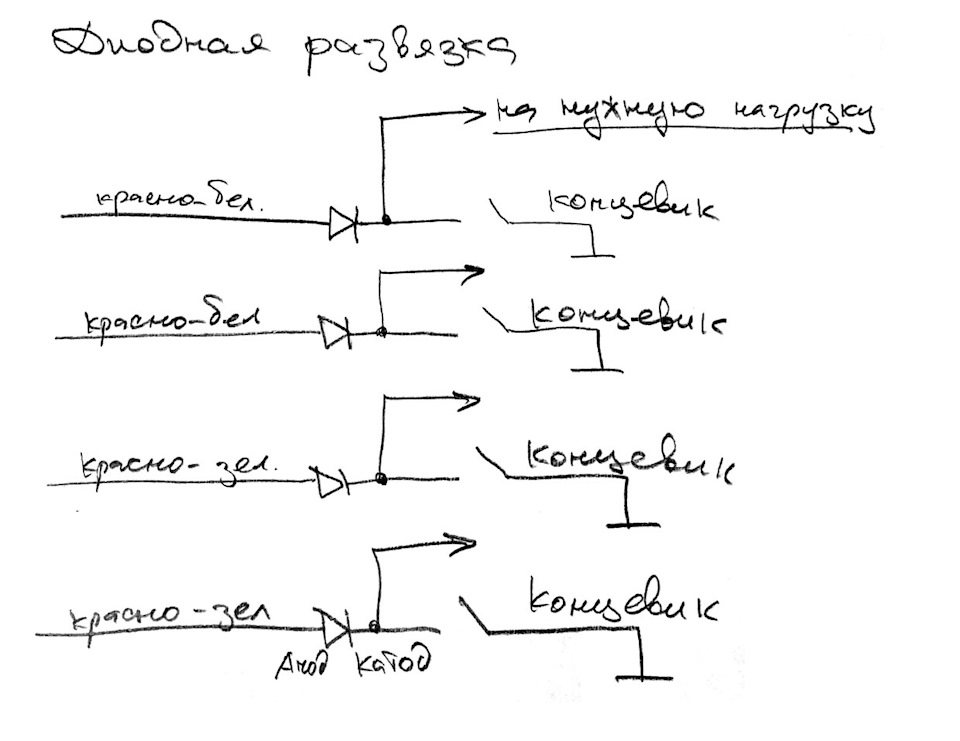 Диодная развязка
на нужную нагрузку
красно-бел.
концевик
красно-бел
концевик
красно-зел.
концевик
красно-зел
концевик
Анод катод